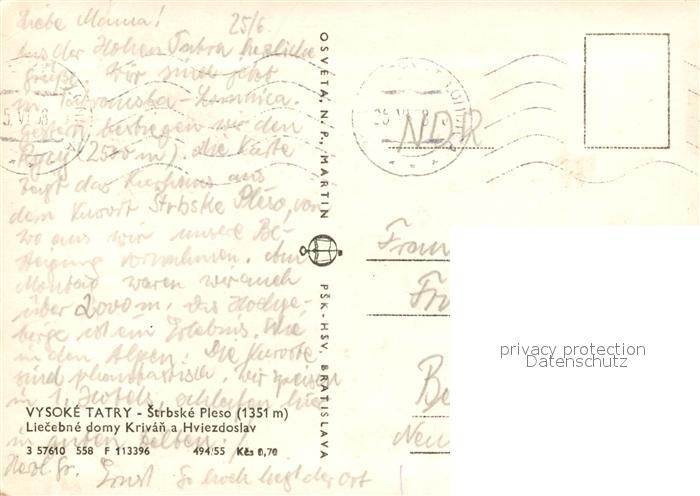 Liebe Mama! 25/6.
Aus der Hohen Tatra herzliche
Grüße. Wir sind jetzt
in Tatranska-Lomnica.
Gestern bestiegen wir den
(2500 m), die Karte
zeigt das Kurhaus aus
dem Kurort Štrbské Pleso, von
wo aus wir unsere Be-
steigung vornahmen. Am
Montag waren wir auch
über 2000 m. Das Hochge-
birge ist ein Erlebnis. Wie
in den Alpen. Die Kurorte
sind phantastisch. Wir speisen
in 1. Hotels, schlafen hier
in guten Betten!
Herzl. Gr. Ernst So hoch liegt der Ort
VYSOKÉ TATRY - Štrbské Pleso (1351 m)
Liečebné domy Kriváň a Hviezdoslav
3 57610 558 F 113396 494/55 Kčs 0,70
OSVETA, N. P., MARTIN
PŠK - HSV. BRATISLAVA
NDR
Fran
Fr
Be
Neu
privacy protection
Datenschutz